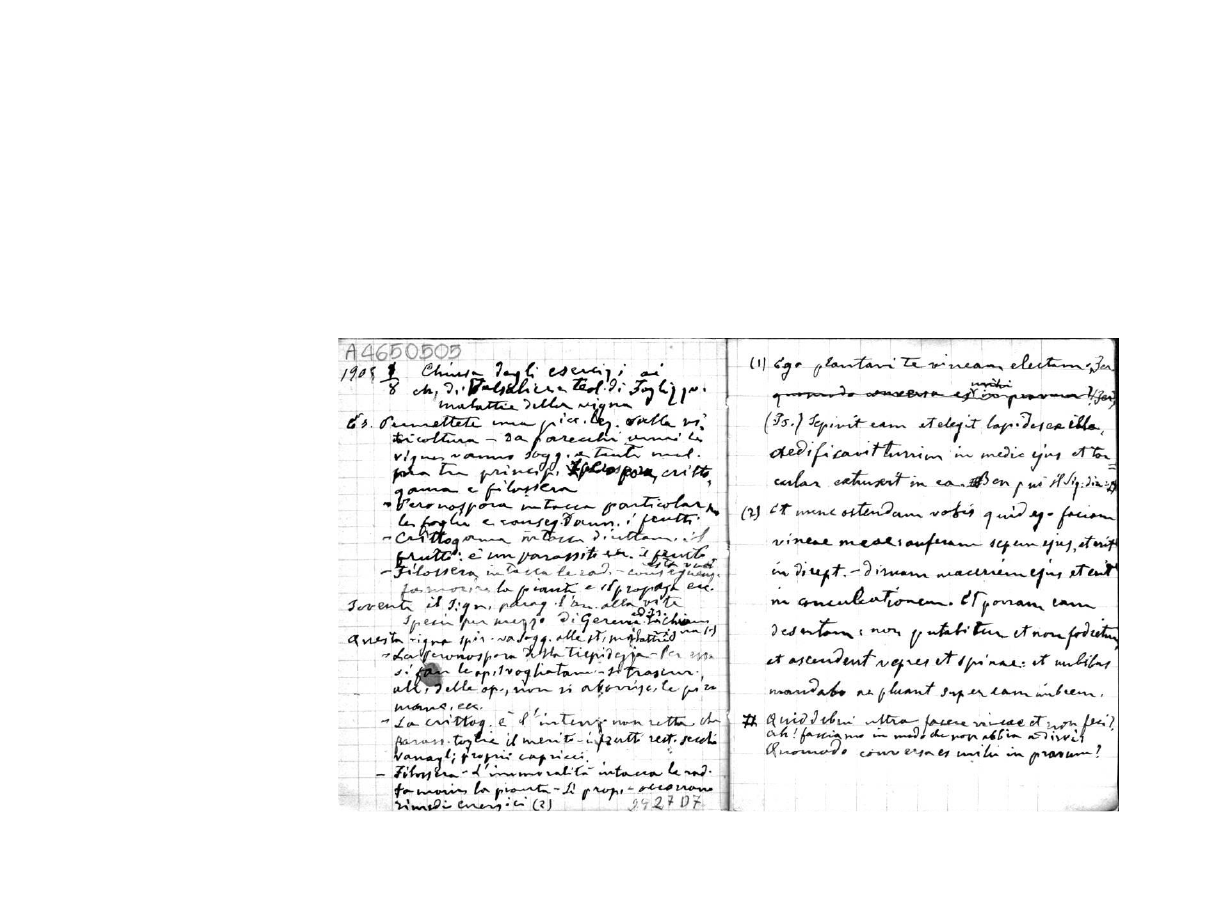 A4650505
1908 8 Chiusa dagli esercizi ai
ch. di Valsalice e teol. di Foglizzo.
malattie della vigna
Es. Permettete una pic. sulla vi-
ticoltura - Da parecchi anni le
vigne vanno sogg. a tante mal.
ma tre princip. critto-
gama e filossera
- Peronospora intacca particolar.
le foglie e conseg. dann. i frutti
- Crittogama intacca direttam. il
frutto: è un parassita il frutto
- Filossera, intacca le rad. - conseguenz.
fa morire la pianta e si propaga ecc.
Sovente il Sign. parag. l'an. alla vite
specie per mezzo di Gerem.
Questa vigna spir. va sogg. alle st. malattie (1)
- La peronospora della tiepidezza - Per essa
si fan le op. svogliatam. - si trascur.
delle op., non si
mane, ecc.
- La crittog. è l'intenz. non retta che
parass. toglie il merito - i frutti rest. secchi
vanagl., proprii capricci.
- Filossera - L'immoralità intacca le rad.
fa morire la pianta - Si prop. - occorrono
rimedi energici (2)
27 D7
(1) Ego plantavi te vineam electam, Jer
quomodo conversa es mihi in pravum? (Jer)
(Is.) Sepivit eam et elegit lapides ex illa,
aedificavit turrim in medio ejus et tor-
cular extruxit in ea. Ben può il Sig. dire
(2) Et nunc ostendam vobis quid ego faciam
vineae meae: auferam sepem ejus, et erit
in dirept. - diruam maceriem ejus et erit
in conculcationem. Et ponam eam
desertam: non putabitur et non fodietur
et ascendent vepres et spinae: et nubibus
mandabo ne pluant super eam imbrem.
# Quid debui ultra facere vineae et non feci?
ah! facciamo in modo che non abbia a dirci
Quomodo conversa es mihi in pravum?